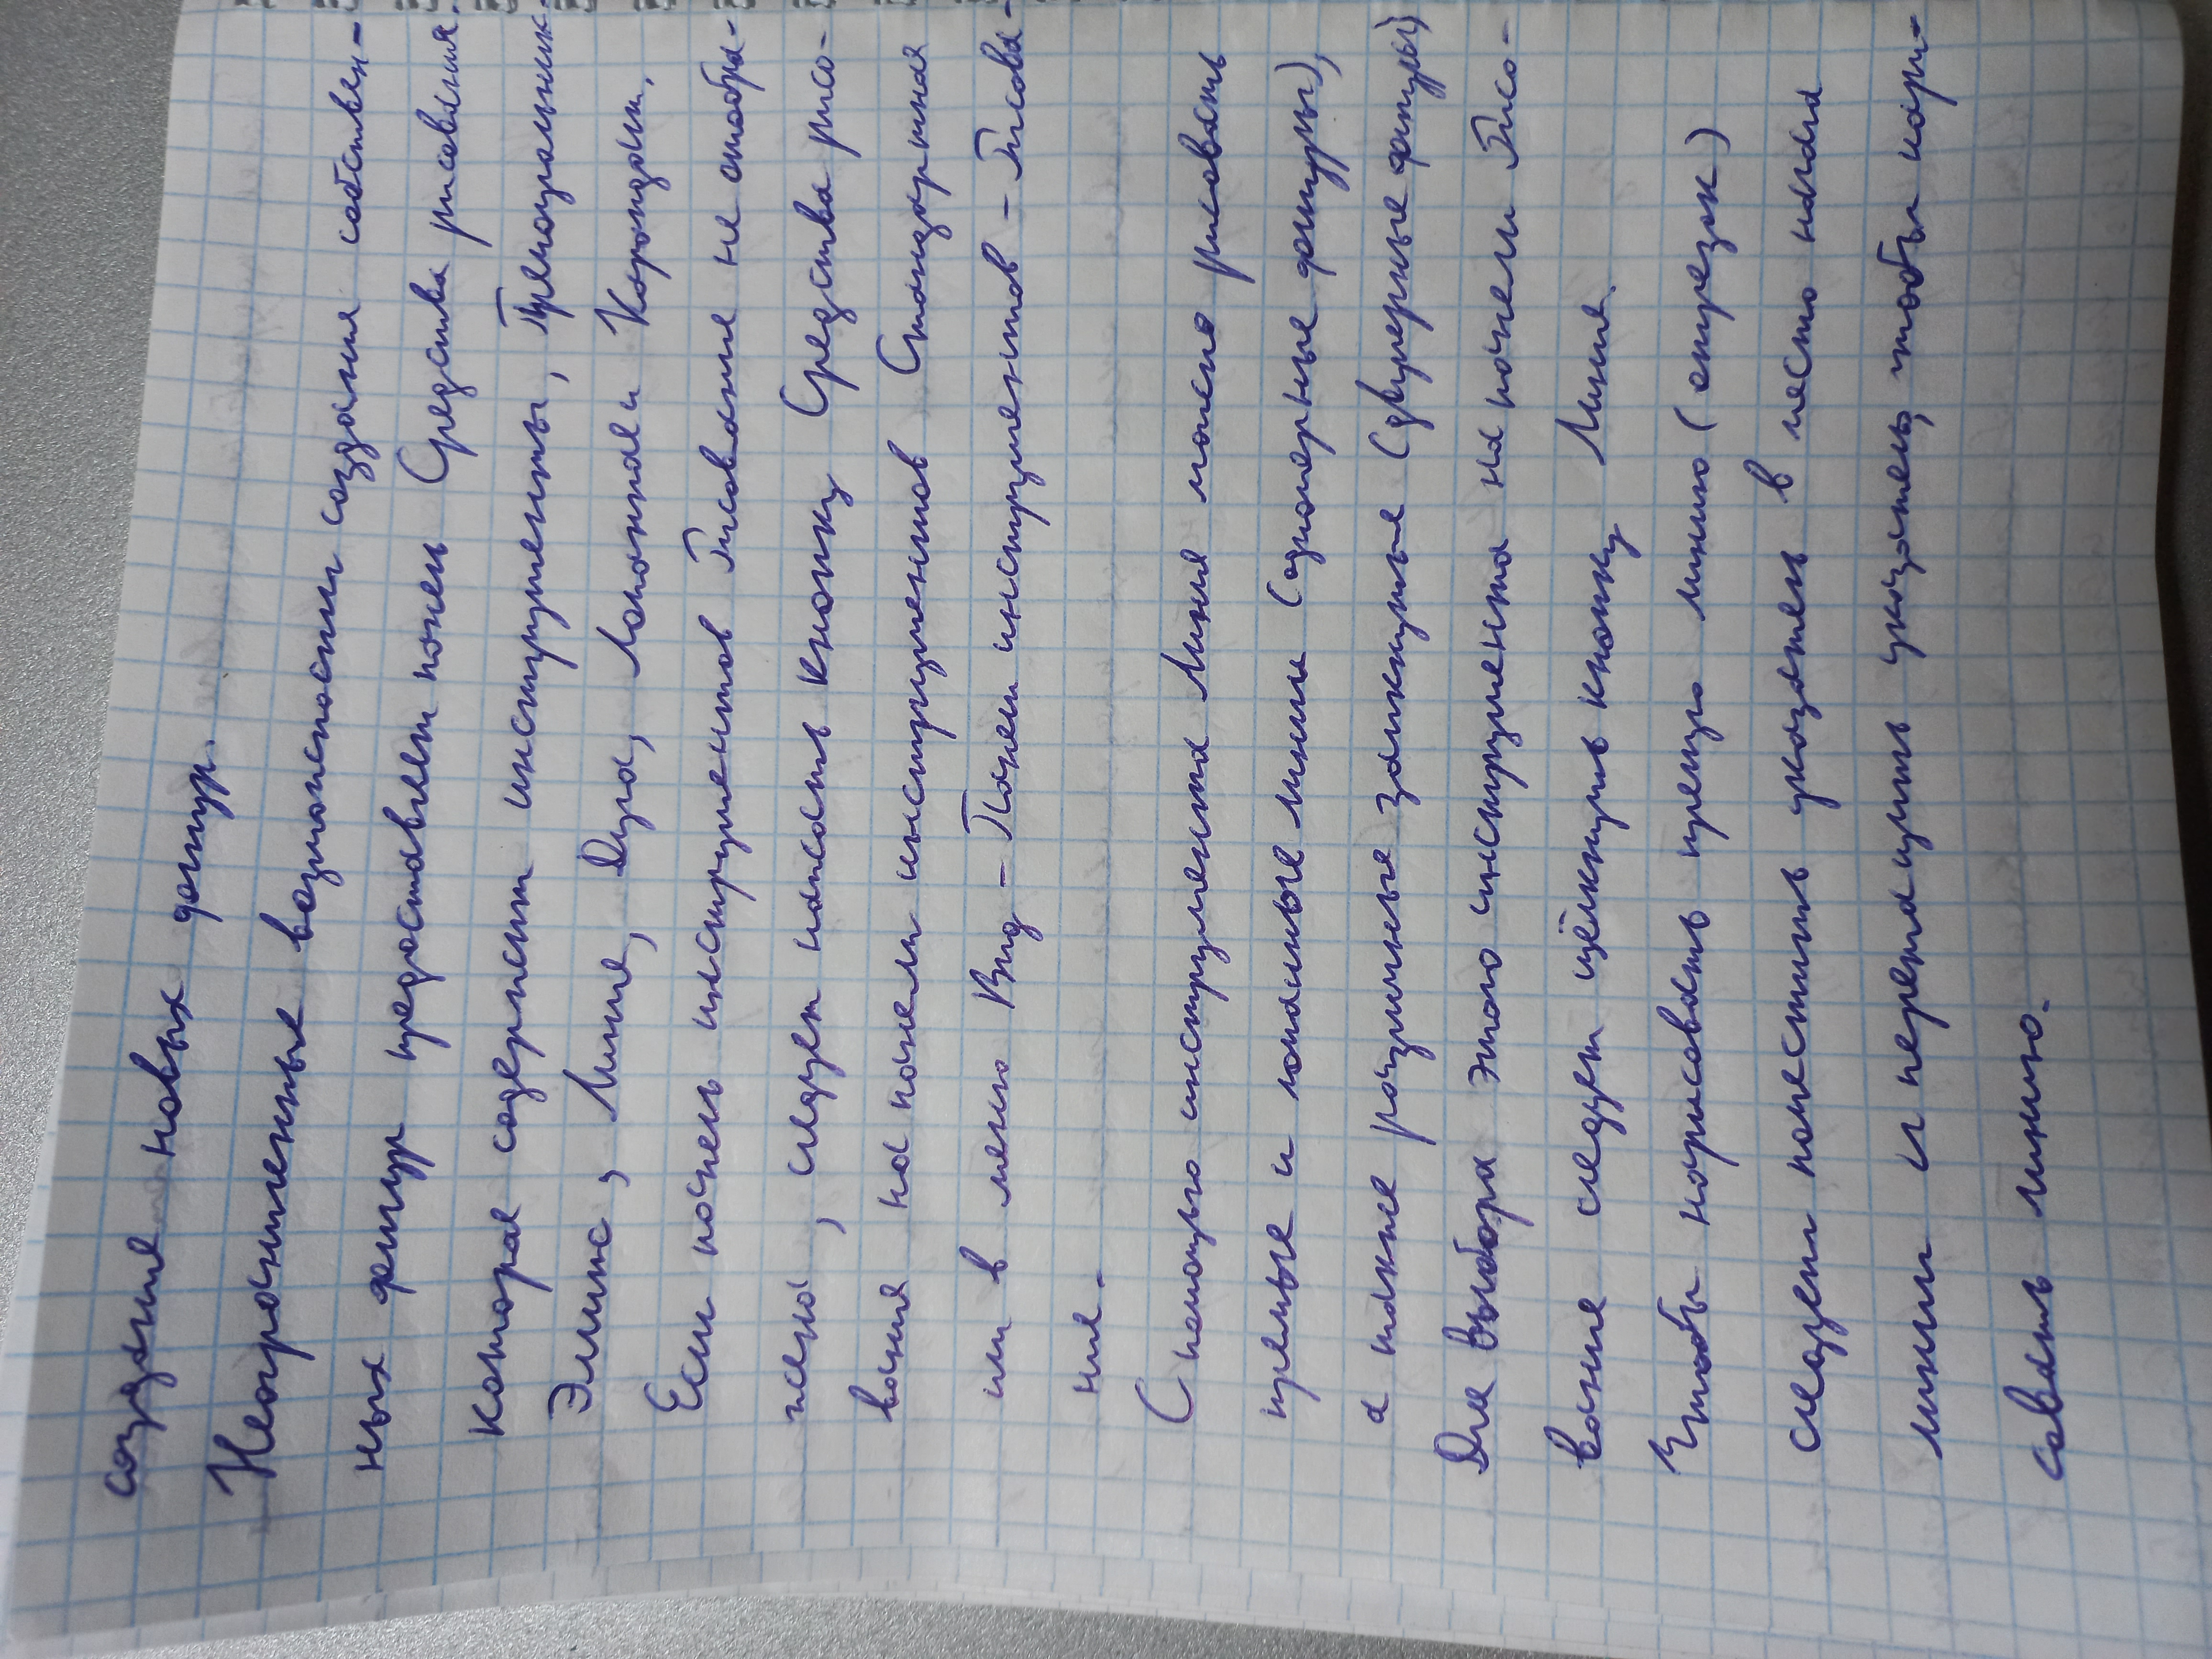 создания новых фигур.
Неограниченные возможности создания собствен-
ных фигур предоставляет понель Средства рисования.
которая содержит инструменты, Прямоугольник
Эллипс, Линия, Дуга, Ломанная и Карандаш.
Если понель инструментов Рисование не отобра-
жена, следует нажать кнопку Средства рисо-
вания на понели инструментов Стандартная
или в меню Вид - Понели инструментов - Рисова-
ние.
С помощью инструмента Линия можно рисовать
прямые и ломаные линии (одномерные фигуры),
а также различные замкнутые (двумерные фигуры)
Для выбора этого инструмента на понели Рисо-
вание следует щёлкнуть кнопку Линия.
Чтобы нарисовать прямую линию (отрезок)
следует поместить указатель в место начала
линии и перетащить указатель, чтобы нари-
совать линию.